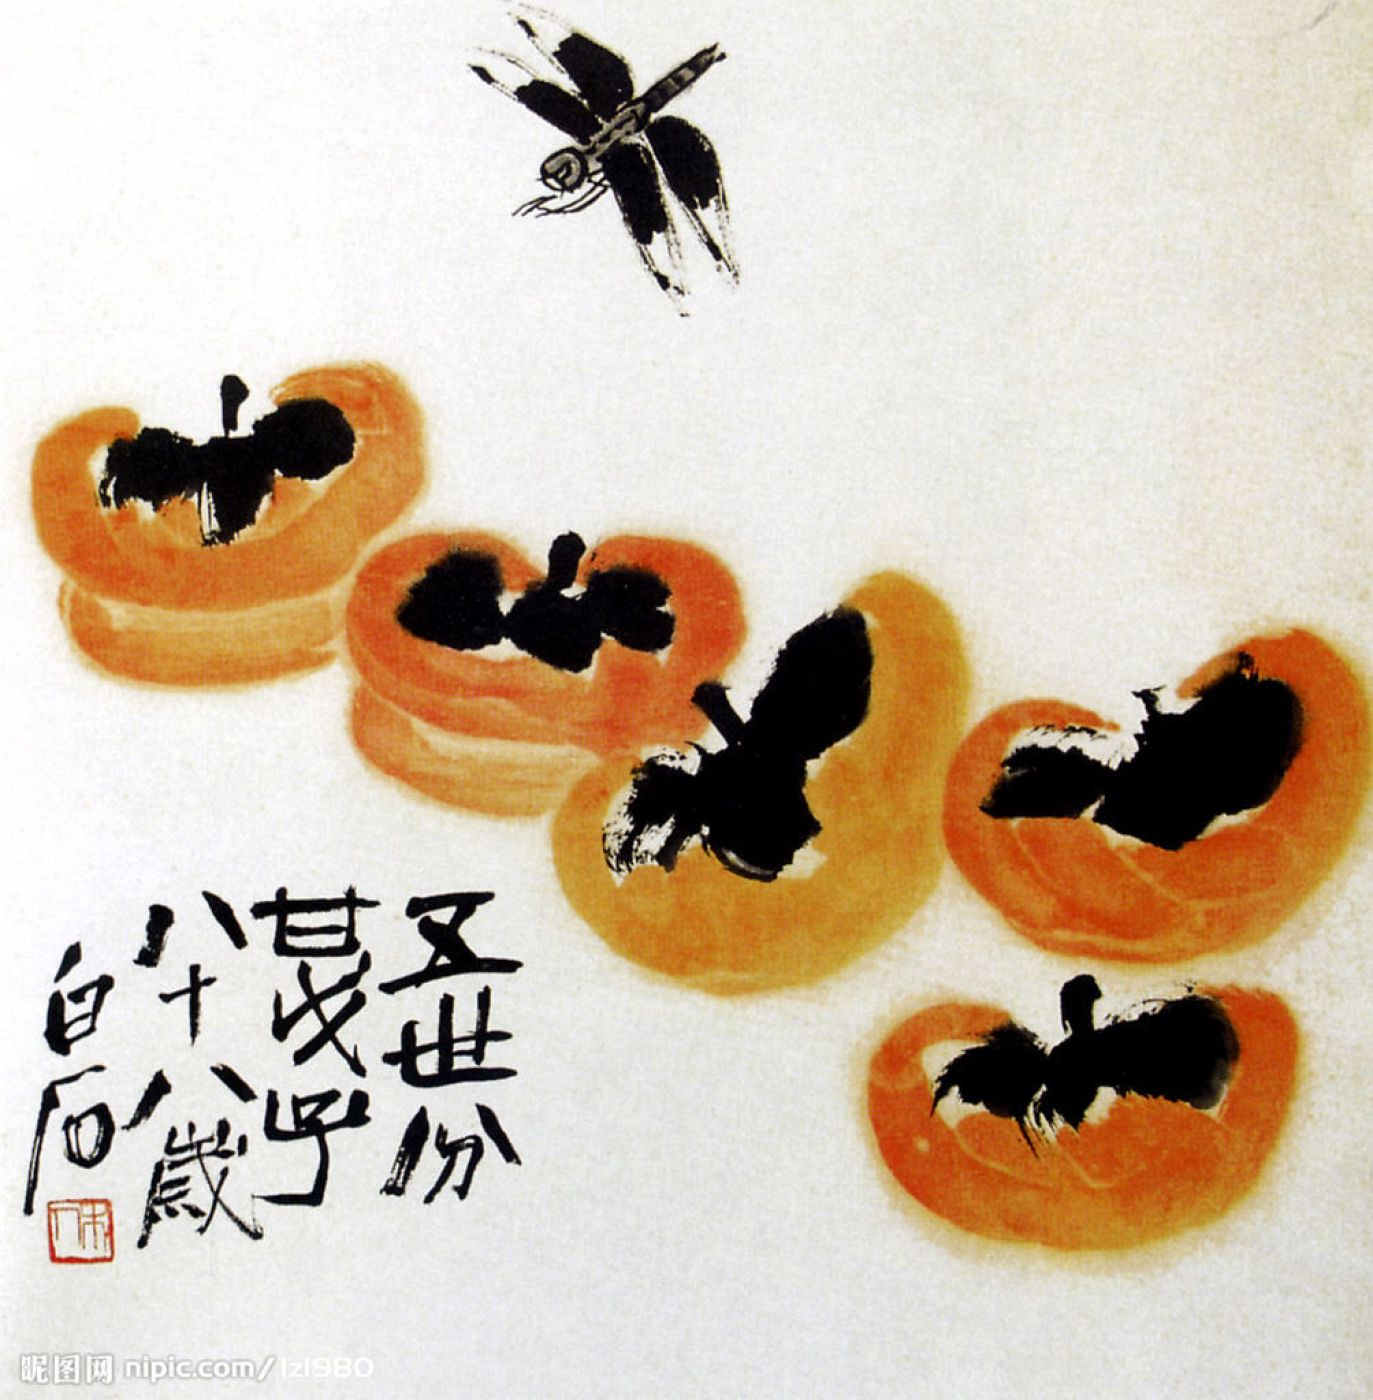 五世份
甘戊子
八十八歲
白石
木人
昵图网 nipic.com/lz1980